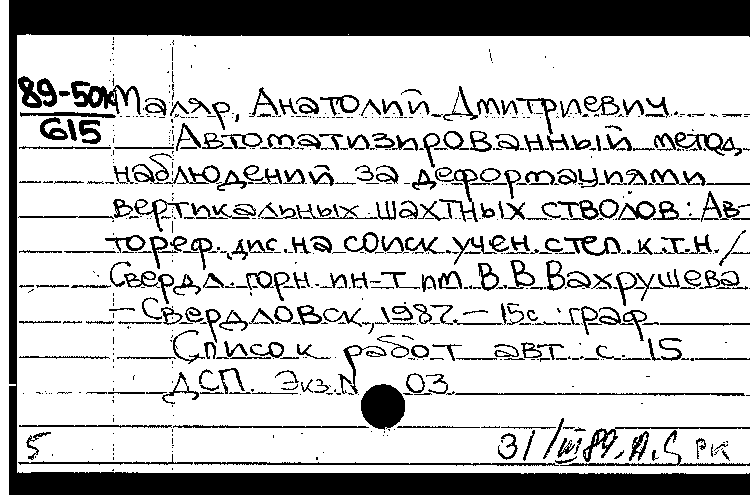 89-50к
615
Маляр, Анатолий Дмитриевич.
Автоматизированный метод
наблюдений за деформациями
вертикальных шахтных стволов: Ав-
тореф. дис. на соиск. учен. степ. к.т.н. /
Свердл. горн. ин-т им. В.В Вахрушева
– Свердловск, 1987. – 15с : граф
Список работ авт. с. 15
ДСП. Экз.N 03.
5 31/III 89.